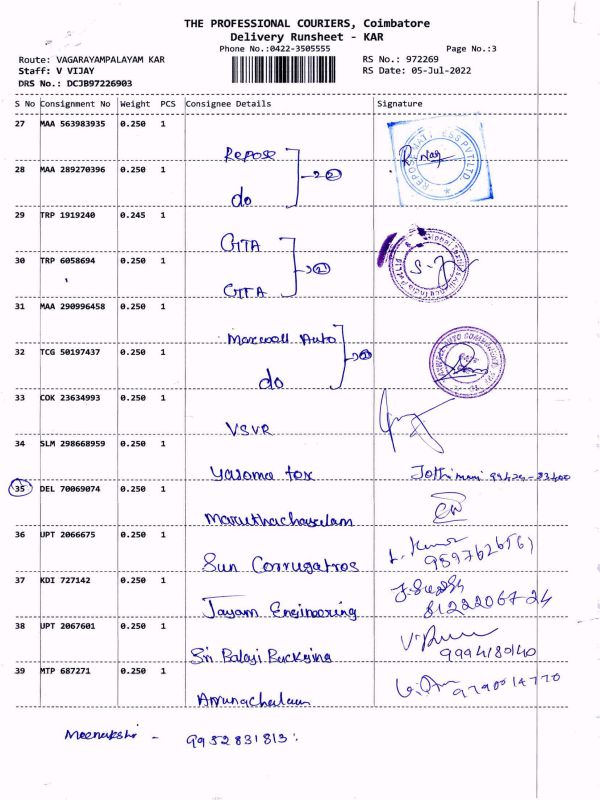 THE PROFESSIONAL COURIERS, Coimbatore
Delivery Runsheet - KAR
Phone No.:0422-3505555
Page No.:3
Route: VAGARAYAMPALAYAM KAR
RS No.: 972269
Staff: V VIJAY
RS Date: 05-Jul-2022
DRS No.: DCJB97226903
S No Consignment No Weight PCS Consignee Details Signature
27 MAA 563983935 0.250 1
Repose
28 MAA 289270396 0.250 1
do
29 TRP 1919240 0.245 1
GTA
30 TRP 6058694 0.250 1
GTA
31 MAA 290996458 0.250 1
Maxwell Auto
32 TCG 50197437 0.250 1
do
33 COK 23634993 0.250 1
VSVR
34 SLM 298668959 0.250 1
35 DEL 70069074 0.250 1
Maruthachayalam
36 UPT 2066675 0.250 1
Sun Corrugatros
37 KDI 727142 0.250 1
Jayam Engineering 8122206724
38 UPT 2067601 0.250 1
Sri Balaji 9994180140
39 MTP 687271 0.250 1
Arrunachalam
Meenakshi - 9952831813